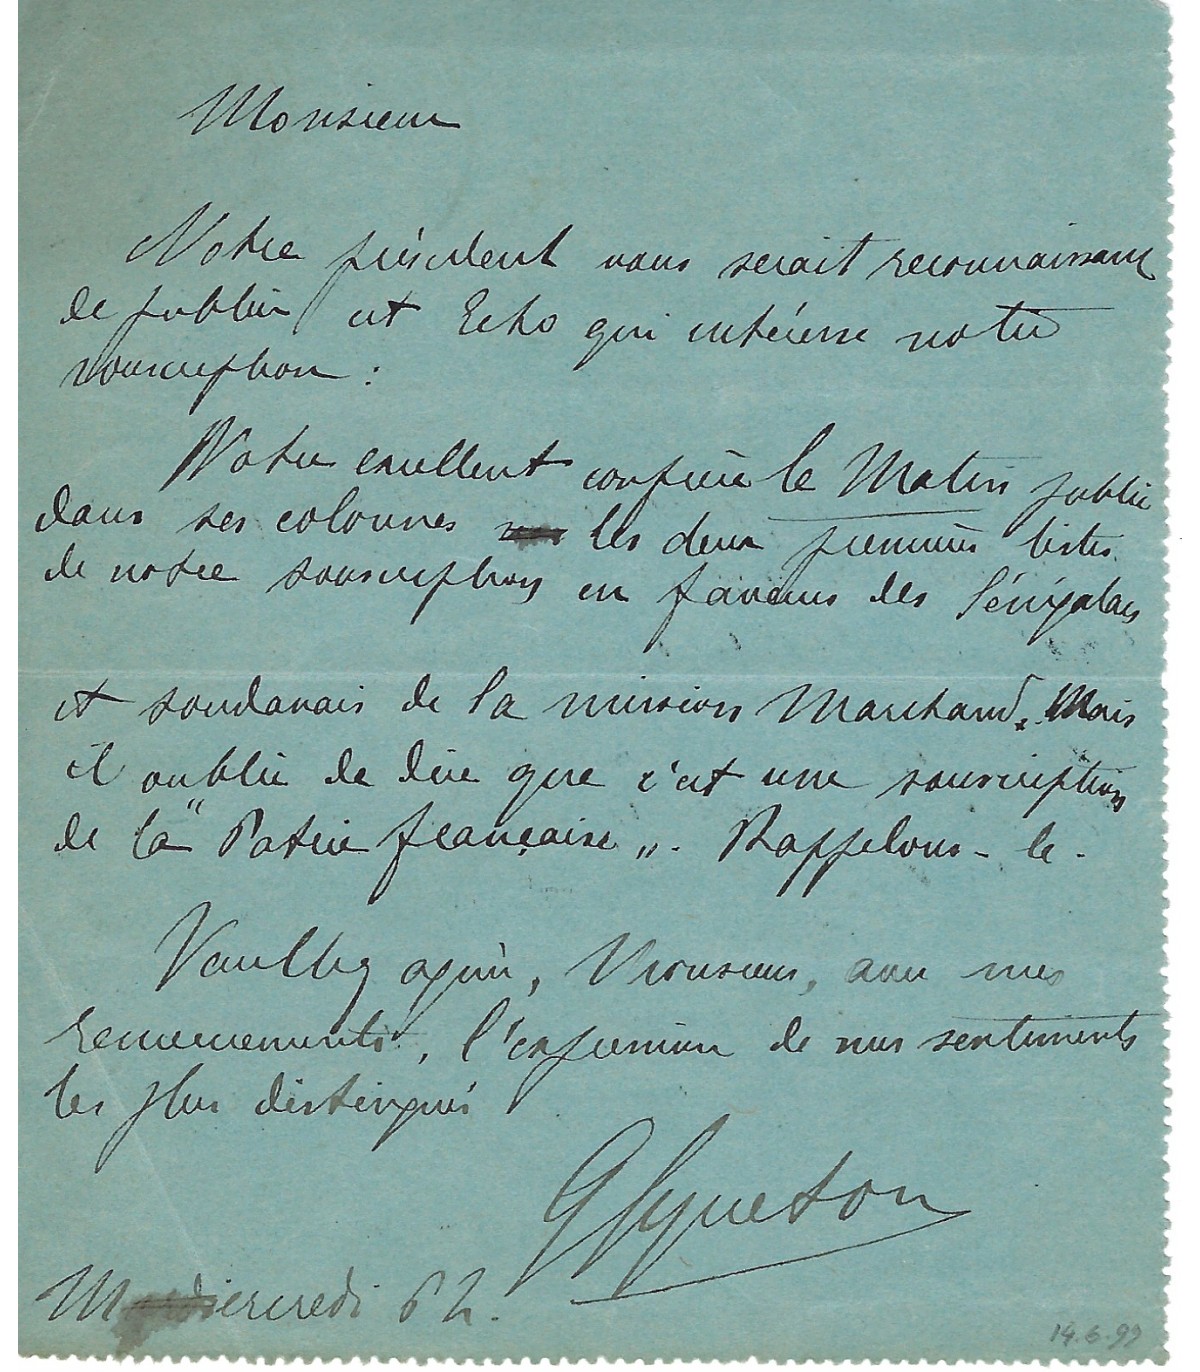 Monsieur
Notre président vous serait reconnaissant
de publier cet Echo qui intéresse notre
souscription :
Notre excellent confrère le Matin publie
dans ses colonnes les deux premières listes
de notre souscription en faveur des Sénégalais
et soudanais de la mission Marchand. Mais
il oublie de dire que c'est une souscription
de la "Patrie française". Rappelons-le.
Veuillez agréer, Monsieur, avec mes
remerciements, l'expression de mes sentiments
les plus distingués
G Syveton
Mercredi 6 h.
14.6.99